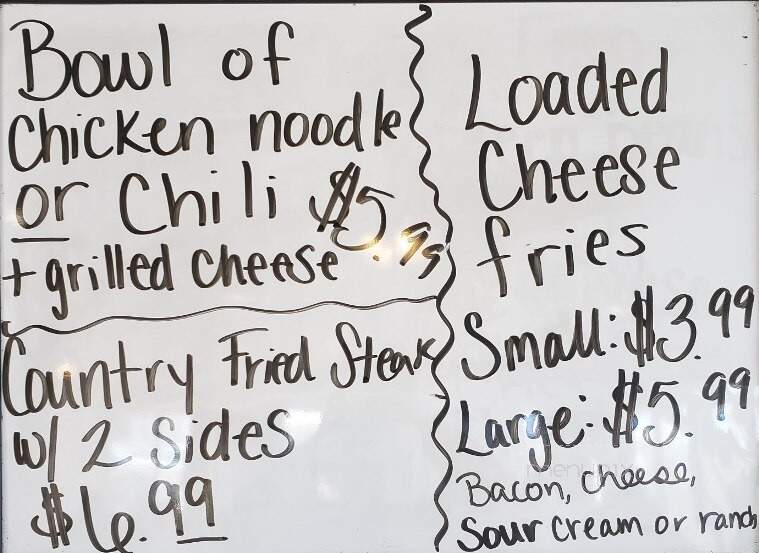 Bowl of
Chicken noodle
or Chili $5.99
+ grilled cheese
Country Fried Steak
w/ 2 Sides
$6.99
Loaded
Cheese
fries
Small: $3.99
Large: $5.99
Bacon, cheese,
Sour Cream or ranch